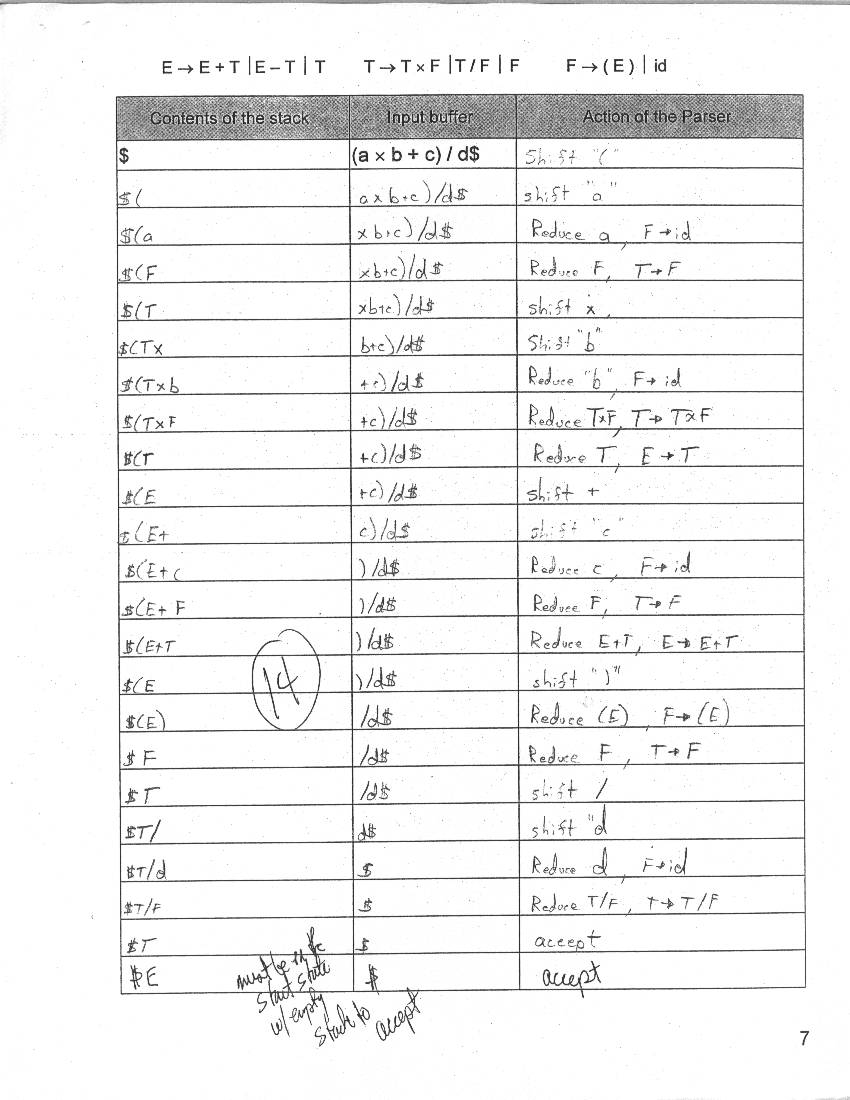 E → E + T | E − T | T T → T × F | T / F | F F → ( E ) | id
Contents of the stack Input buffer Action of the Parser
$ (a × b + c) / d$ Shift "("
$( a x b+c)/d$ shift "a"
$(a x b+c)/d$ Reduce a, F→id
$(F xb+c)/d$ Reduce F, T→F
$(T xb+c)/d$ shift x,
$(Tx b+c)/d$ Shift "b"
$(Txb +c)/d$ Reduce "b", F→id
$(TxF +c)/d$ Reduce TxF, T→TxF
$(T +c)/d$ Reduce T, E→T
$(E +c)/d$ shift +
$(E+ c)/d$ shift "c"
$(E+c )/d$ Reduce c, F→id
$(E+F )/d$ Reduce F, T→F
$(E+T )/d$ Reduce E+T, E→E+T
$(E )/d$ shift ")"
14
$(E) /d$ Reduce (E), F→(E)
$F /d$ Reduce F, T→F
$T /d$ shift /
$T/ d$ shift "d
$T/d $ Reduce d, F→id
$T/F $ Reduce T/F, T→T/F
$T $ accept
$E $ accept
must be in the
start state
w/ empty
stack to
accept
7